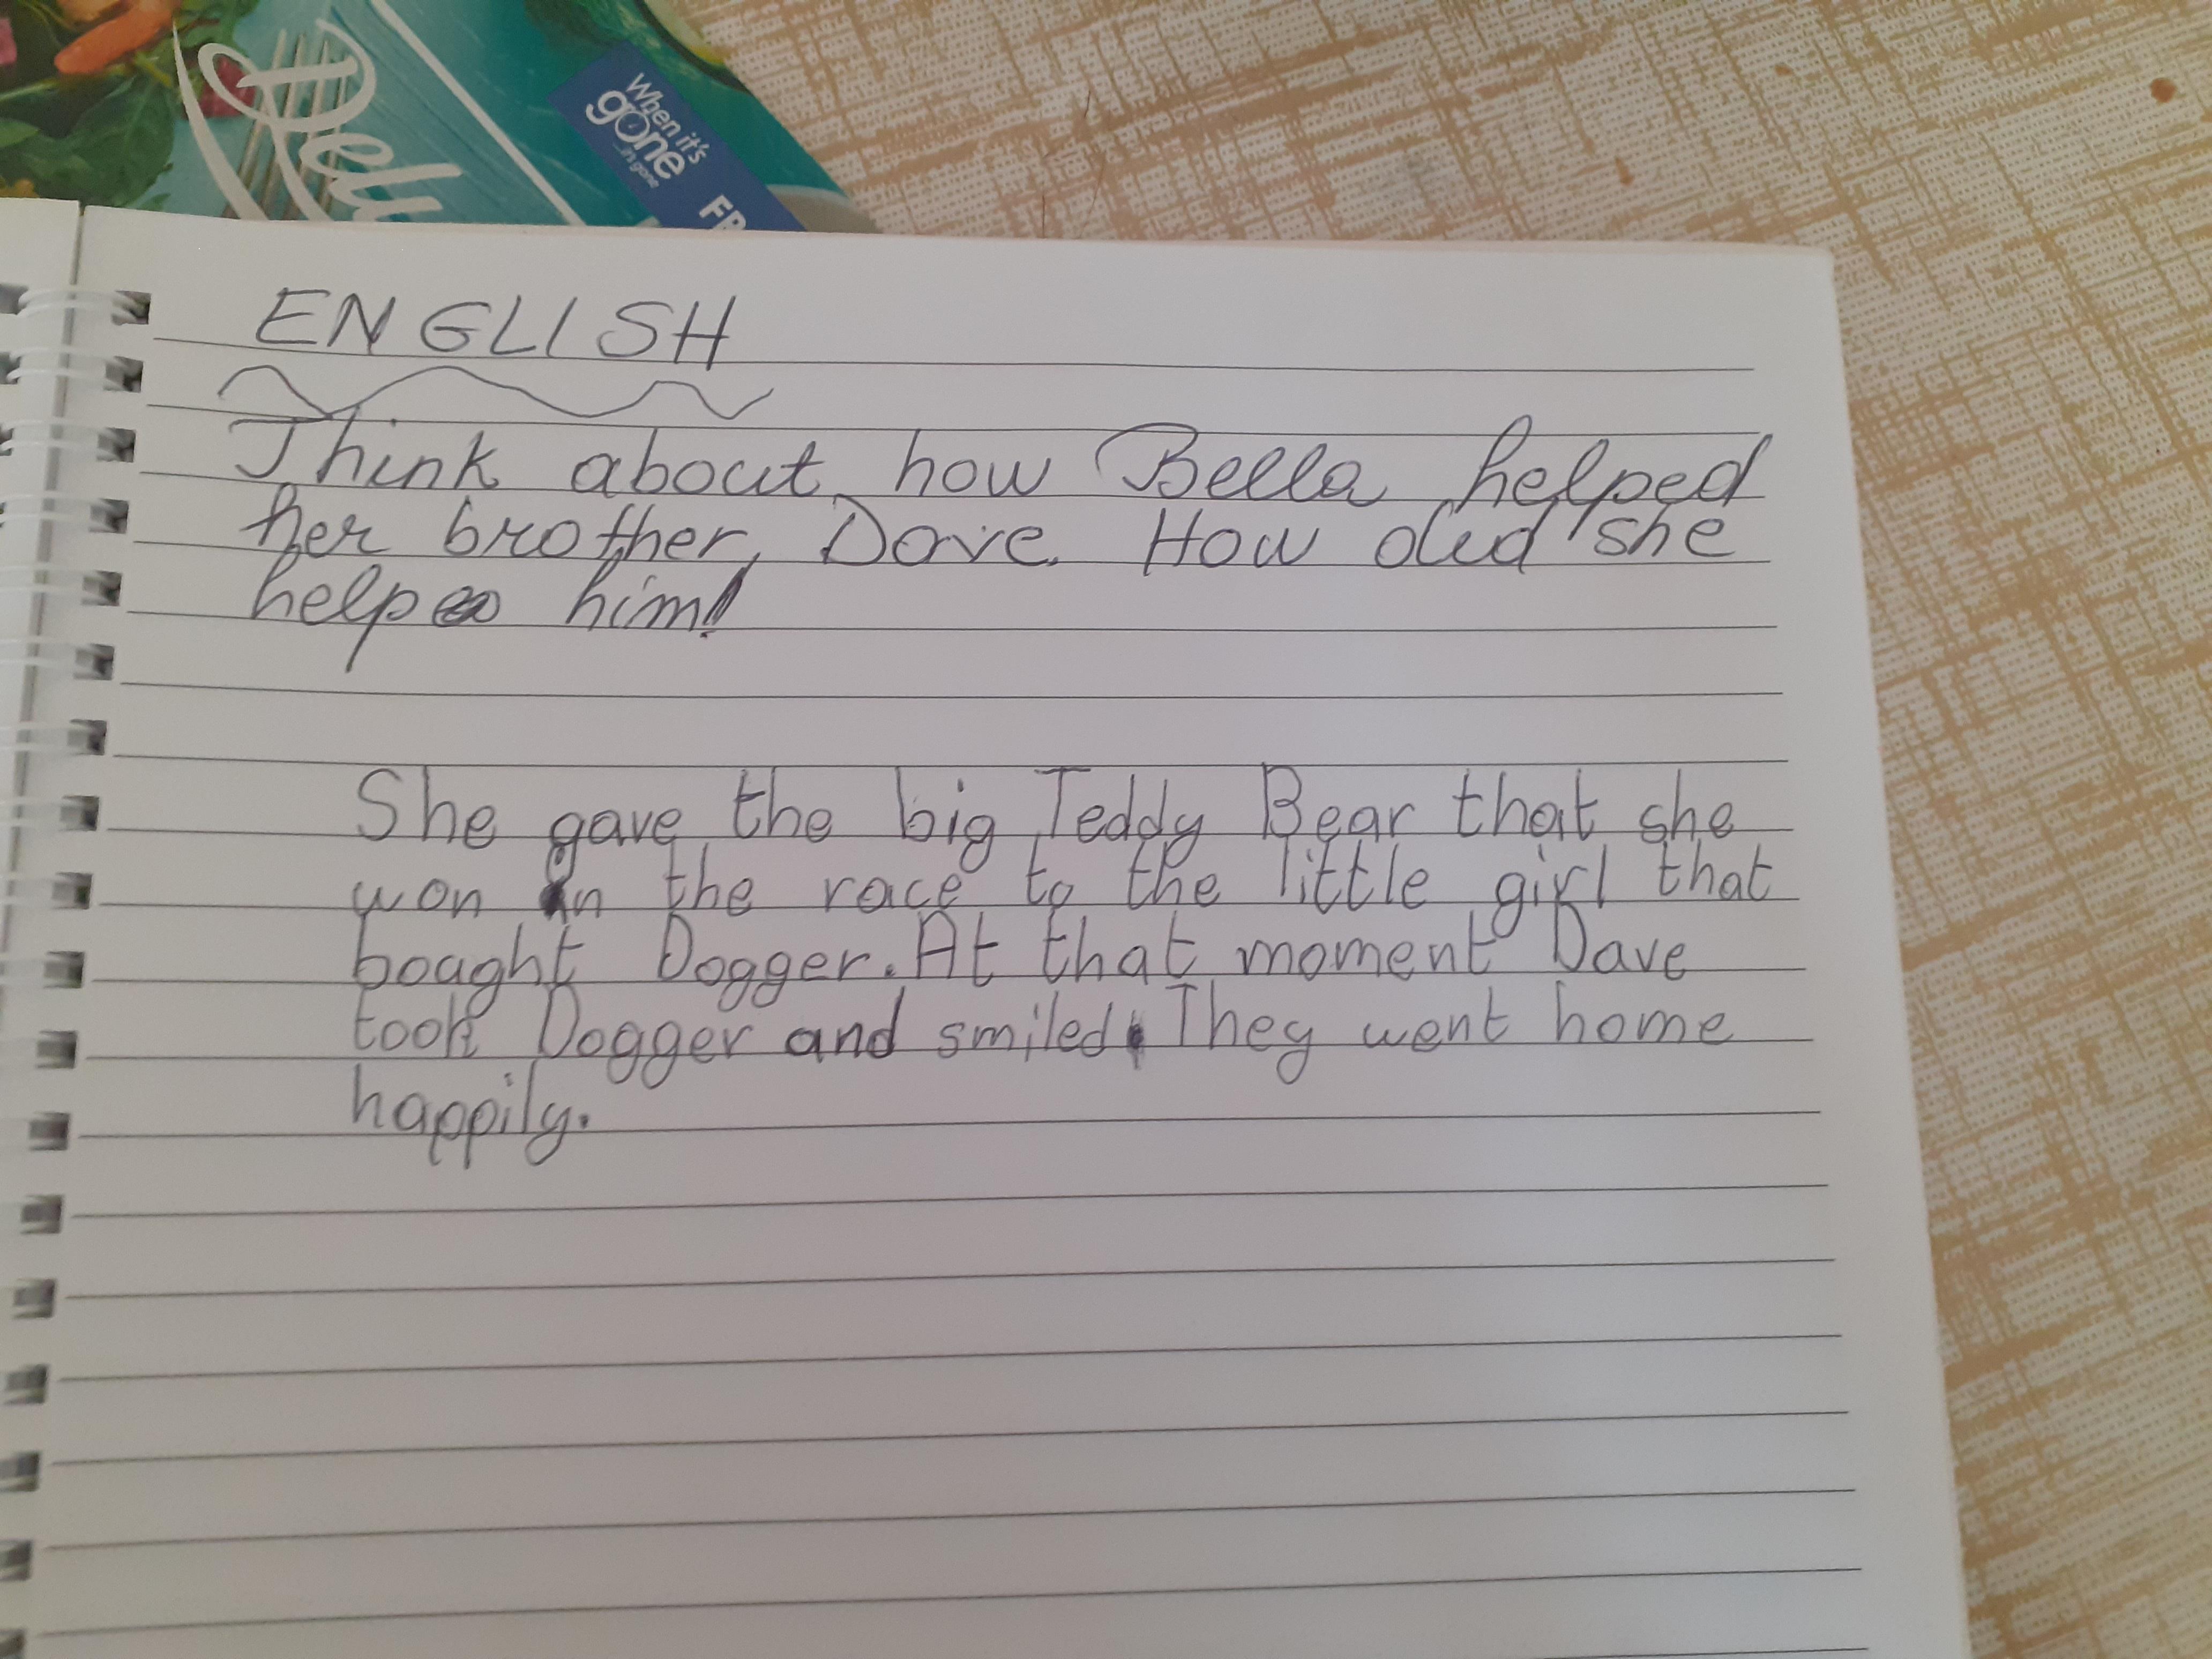 When it's
gone
...it's gone
FR
ENGLISH
Think about how Bella helped
her brother, Dave. How did she
help him!
She gave the big Teddy Bear that she
won in the race to the little girl that
bought Dogger. At that moment Dave
took Dogger and smiled. They went home
happily.